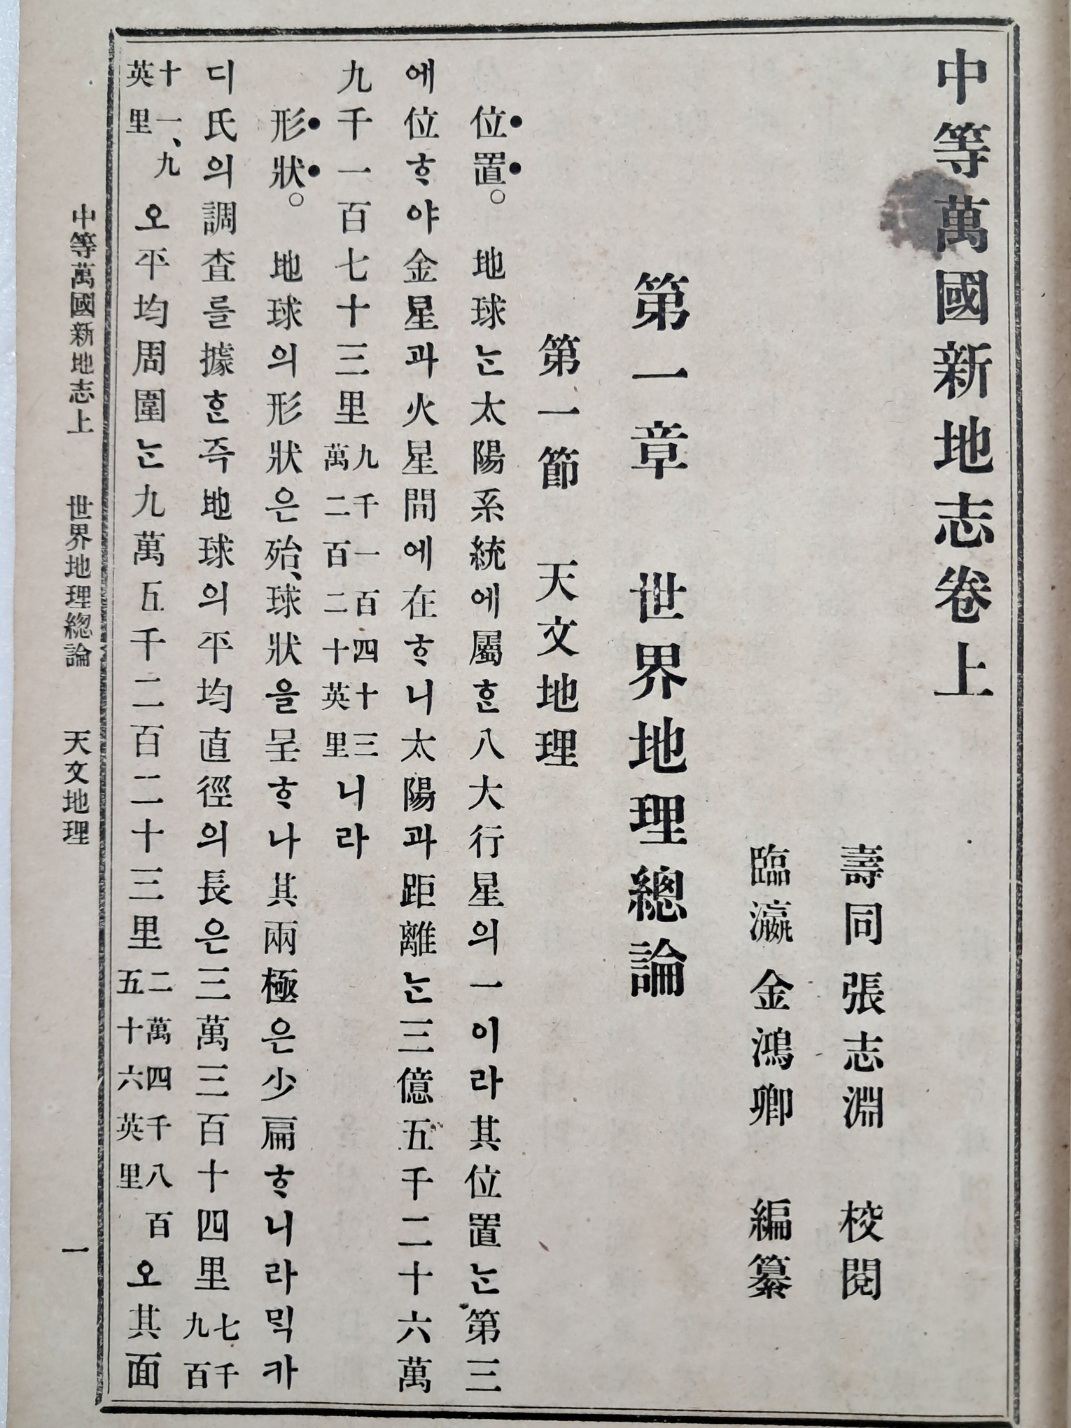 中等萬國新地志卷上
壽同 張志淵 校閱
臨瀛 金鴻卿 編纂
第一章 世界地理總論
第一節 天文地理
位置。 地球ᄂᆞᆫ太陽系統에屬ᄒᆞᆫ八大行星의一이라其位置ᄂᆞᆫ第三
에位ᄒᆞ야金星과火星間에在ᄒᆞ니太陽과距離ᄂᆞᆫ三億五千二十六萬
九千一百七十三里九千一百四十三萬二百二十英里니라
形狀。 地球의形狀은殆、球狀을呈ᄒᆞ나其兩極은少扁ᄒᆞ니라믹카
디氏의調査를據ᄒᆞᆫ즉地球의平均直徑의長은三萬三百十四里七千九百
十一、九英里오平均周圍ᄂᆞᆫ九萬五千二百二十三里二萬四千八百五十六英里오其面
中等萬國新地志上 世界地理總論 天文地理 一